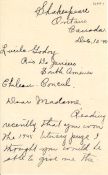 Shakespeare
Ontario
Canada
Dec. 12, 
Lucila Godoy
Rio De Janeiro
British Consul
Chilean Consul
Dear Madame,
Reading
recently that you won
the 1945 literary prize I
thought you would be
able to give me the